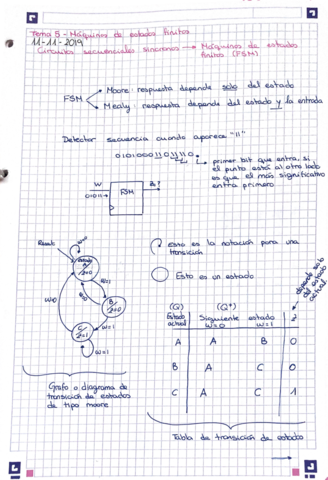 Tema 5 - Máquinas de estados finitos
11-11-2019
Circuitos secuenciales síncronos → Máquinas de estados
finitos (FSM)
FSM
Moore: respuesta depende solo del estado
Mealy: respuesta depende del estado y la entrada
Detector secuencia cuando aparece "11"
primer bit que entra, si
el punto está al otro lado
es que el más significativo
entra primero
W
FSM
Esto es la notación para una
transición
Esto es un estado
Reset
W=0
W=1
A
Z=0
W=0
W=0
B/
Z=0
W=1
C/
Z=1
W=1
depende solo
del estado
actual
(Q) (Q*)
Estado Siguiente estado Z
actual W=0 W=1
A A B 0
B A C 0
C A C 1
Grafo o diagrama de
transición de estados
de tipo moore
Tabla de transición de estado